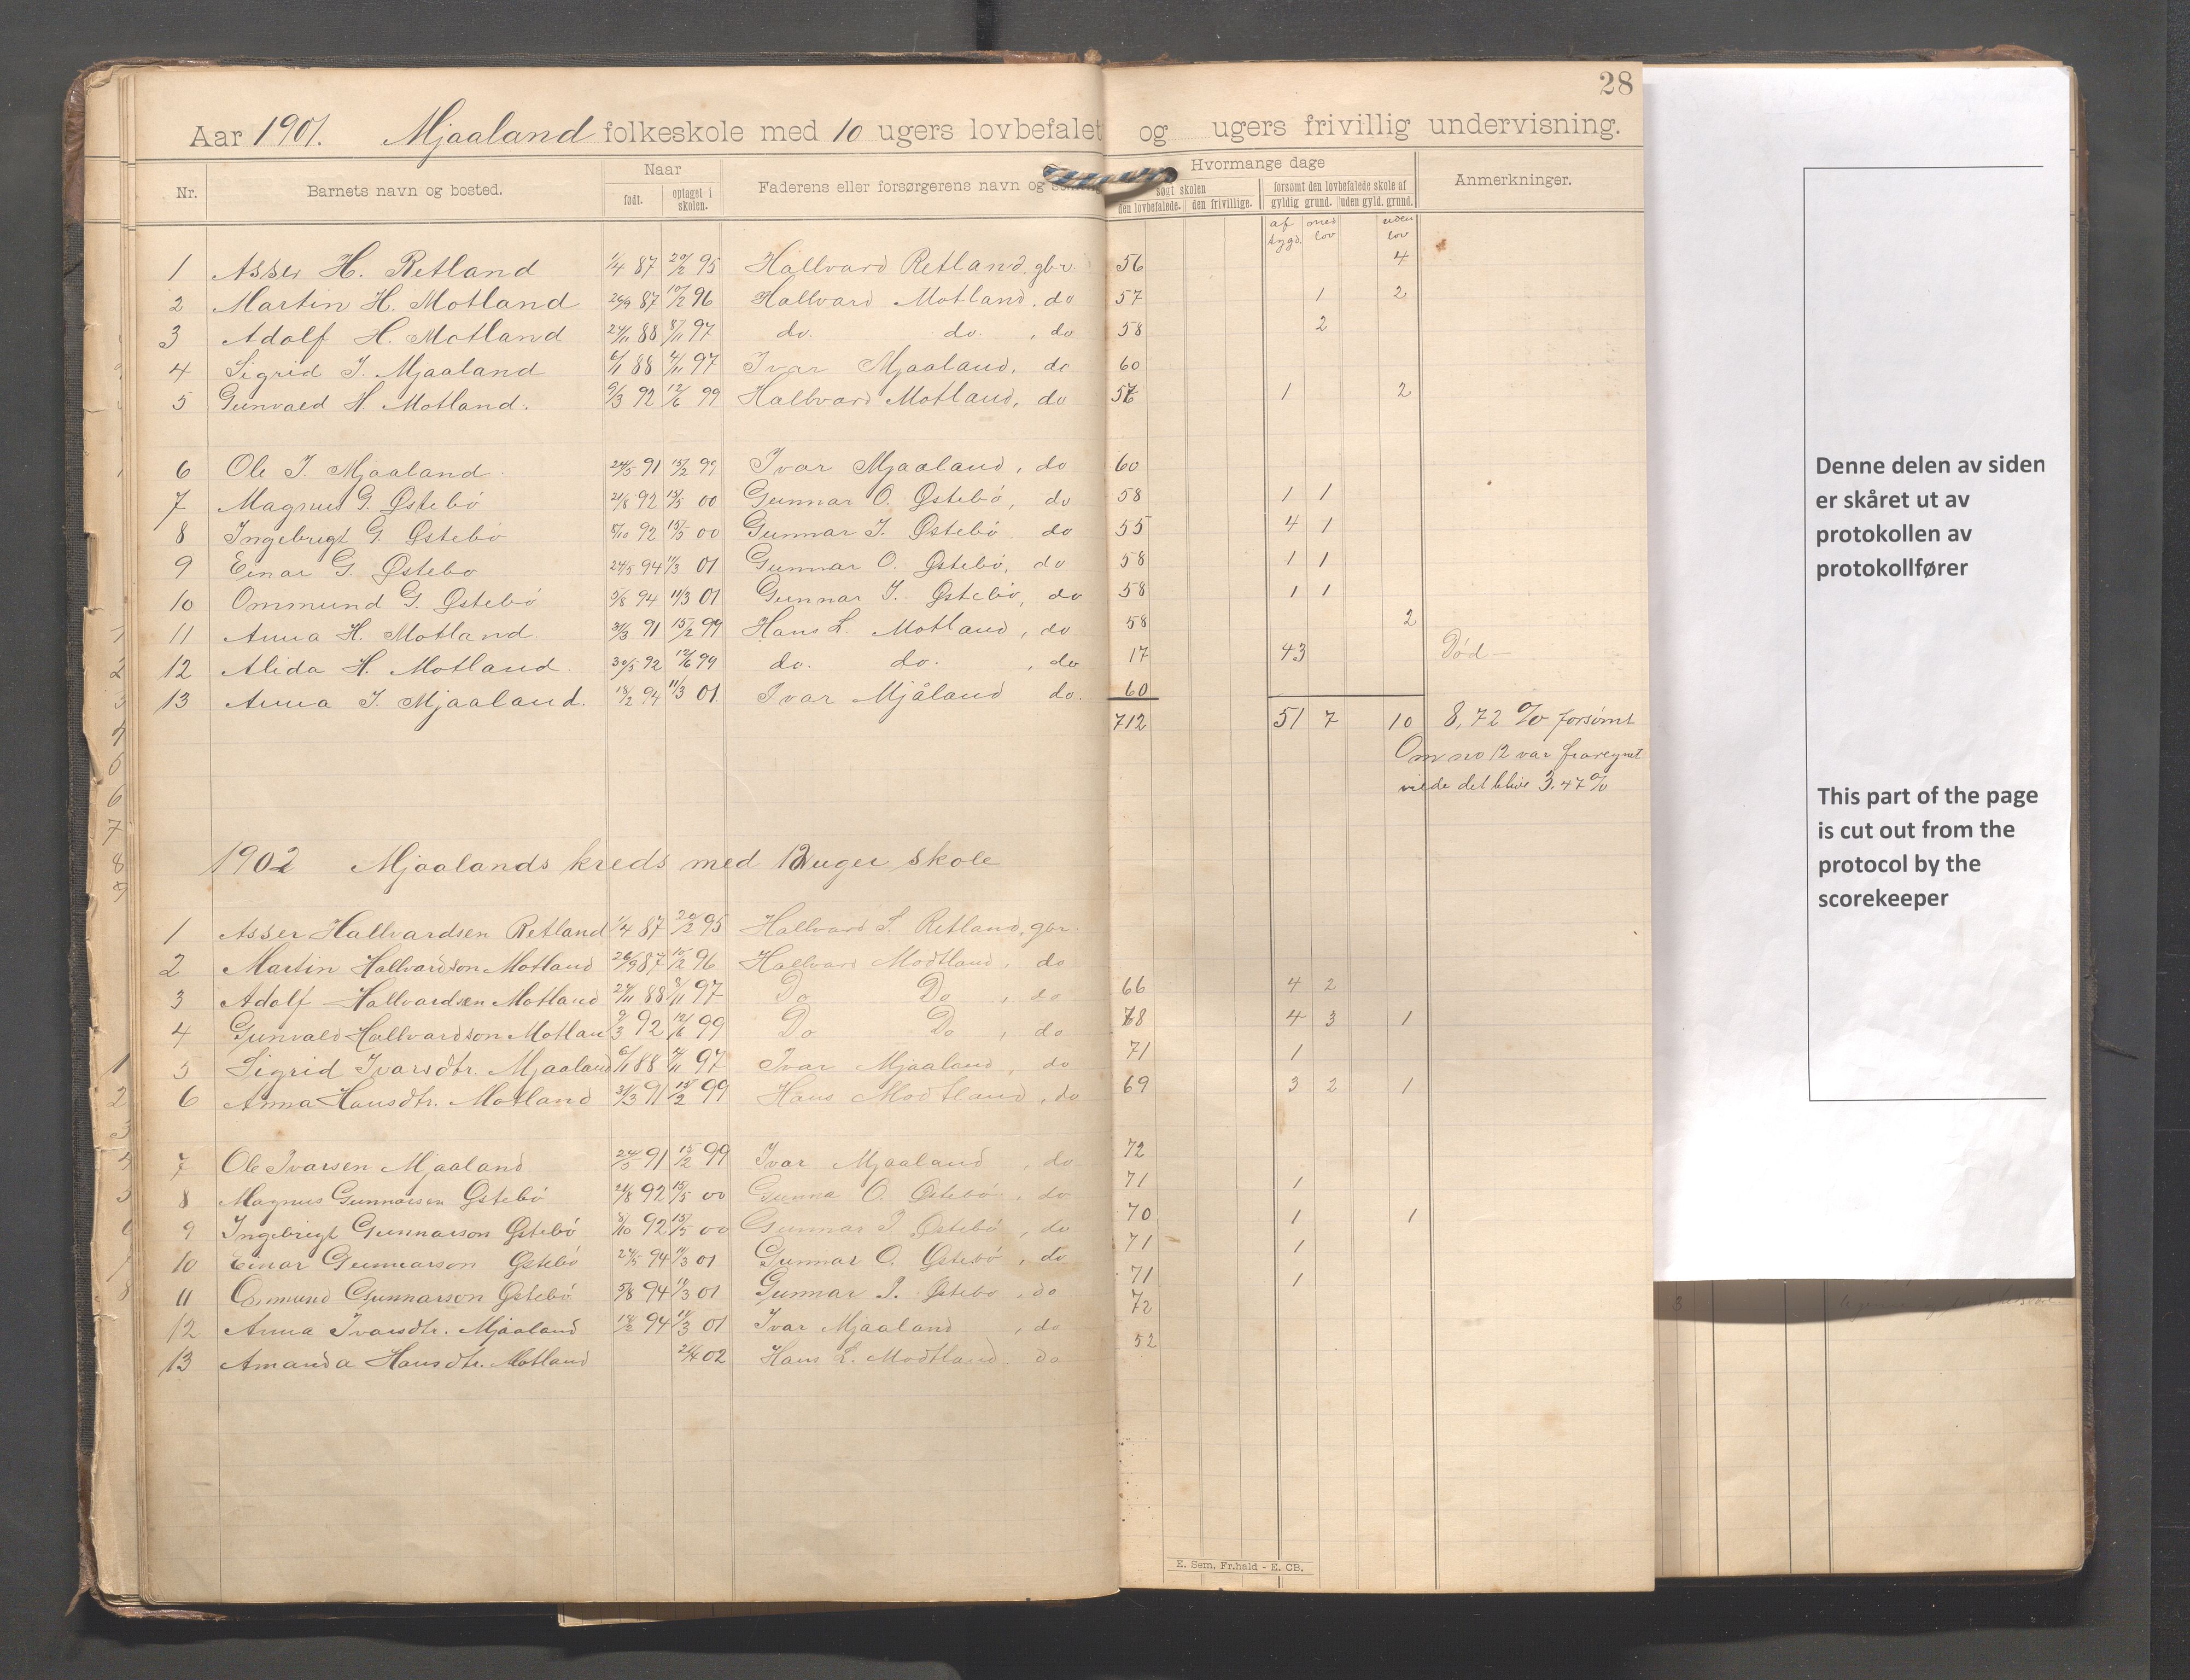 28
Aar 1901. Mjaaland folkeskole med 10 ugers lovbefalet og ugers frivillig undervisning.
Nr. Barnets navn og bosted. Naar født. optaget i skolen. Faderens eller forsørgerens navn og Hvormange dage søgt skolen den lovbefalede. den frivillige. forsømt den lovbefalede skole af gyldig grund. uden gyld. grund. Anmerkninger.
af sygd. med lov uden lov
1 Asser H. Retland 1/4 87 20/2 95 Hallvard Retland, gbr. 56 4
2 Martin H. Motland 26/9 87 10/2 96 Hallvard Motland, do 57 1 2
3 Adolf H. Motland 24/11 88 8/11 97 do. do. , do 58 2
4 Sigrid I. Mjaaland 6/1 88 4/11 97 Ivar Mjaaland, do 60
5 Gunvald H. Motland. 9/3 92 12/6 99 Hallvard Motland, do 57 1 2
6 Ole I. Mjaaland. 24/5 91 15/2 99 Ivar Mjaaland, do 60
7 Magnus G. Østebö 21/8 92 15/5 00 Gunnar O. Østebö, do 58 1 1
8 Ingebrigt G. Østebö 8/10 92 15/5 00 Gunnar I. Østebö do 55 4 1
9 Einar G. Østebo 24/5 94 11/3 01 Gunnar O. Østebö, do 58 1 1
10 Ommund G. Østebö 5/8 94 11/3 01 Gunnar I. Østebö, do 58 1 1
11 Anna H. Motland. 31/3 91 15/2 99 Hans L. Motland, do 58 2
12 Alida H. Motland. 30/5 92 12/6 99 do. do. , do 17 43 Død —
13 Anna I. Mjaaland. 18/2 94 11/3 01. Ivar Mjåland do. 60
712 51 7 10 8,72 % forsømt
Om no 12 var fraregnet
vilde det blive 3,47 %
1902 Mjaalands kreds med 12 uger skole
1 Asser Hallvardsen Retland 1/4 87 20/2 95 Hallvard S. Retland, gbr.
2 Martin Hallvardson Motland 26/9 87 10/2 96 Hallvard Modtland, do
3 Adolf Hallvardsen Motland 24/11 88 8/11 97 Do Do , do 66 4 2
4 Gunvald Hallvardson Motlan 9/3 92 12/6 99 Do Do , do 68 4 3 1
5 Sigrid Ivarsdtr. Mjaaland 6/1 88 4/11 97 Ivar Mjaaland, do 71 1
6 Anna Hansdtr. Motland 31/3 91 15/2 99 Hans Modtland, do 69 3 2 1
7 Ole Ivarsen Mjaaland 24/5 91 15/2 99 Ivar Mjaaland , do 72
8 Magnus Gunnarsen Østebö 21/8 92 15/5 00 Gunna O. Østebö, do 71 1
9 Ingebrigt Gunnarson Østebö 8/10 92 15/5 00 Gunnar I. Østebö, do 70 1 1
10 Einar Gunnarson Østebö 24/5 94 11/3 01 Gunnar O. Østebö, do 71 1
11 Ommund Gunnarson Østebö 5/8 94 11/3 01 Gunnar I. Østebo, do 71 1
12 Anna Ivarsdtr. Mjaaland 18/2 94 11/3 01 Ivar Mjaaland , do 72
13 Amanda Hansdtr. Motland 24/4 02 Hans L. Modtland. do 52
E. Sem, Fr.hald - E. CB.
Denne delen av siden
er skåret ut av
protokollen av
protokollfører
This part of the page
is cut out from the
protocol by the
scorekeeper